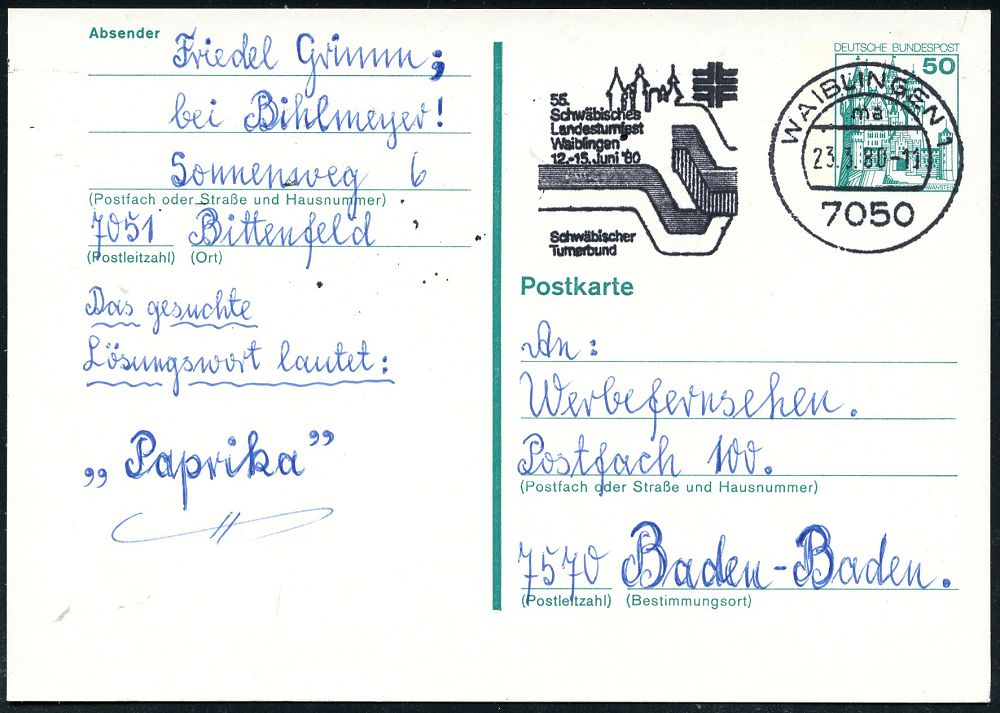 Absender
Friedel Grimm;
bei Bihlmeyer!
Sonnenweg 6
(Postfach oder Straße und Hausnummer)
7051 Bittenfeld
(Postleitzahl) (Ort)
Das gesuchte
Lösungswort lautet:
„Paprika”
55.
Schwäbisches
Landesturnfest
Waiblingen
12.-15. Juni '80
Schwäbischer
Turnerbund
DEUTSCHE BUNDESPOST
50
WAIBLINGEN 1
ma
23.3.80-11
7050
Postkarte
An:
Werbefernsehen.
Postfach 100.
(Postfach oder Straße und Hausnummer)
7570 Baden-Baden.
(Postleitzahl) (Bestimmungsort)